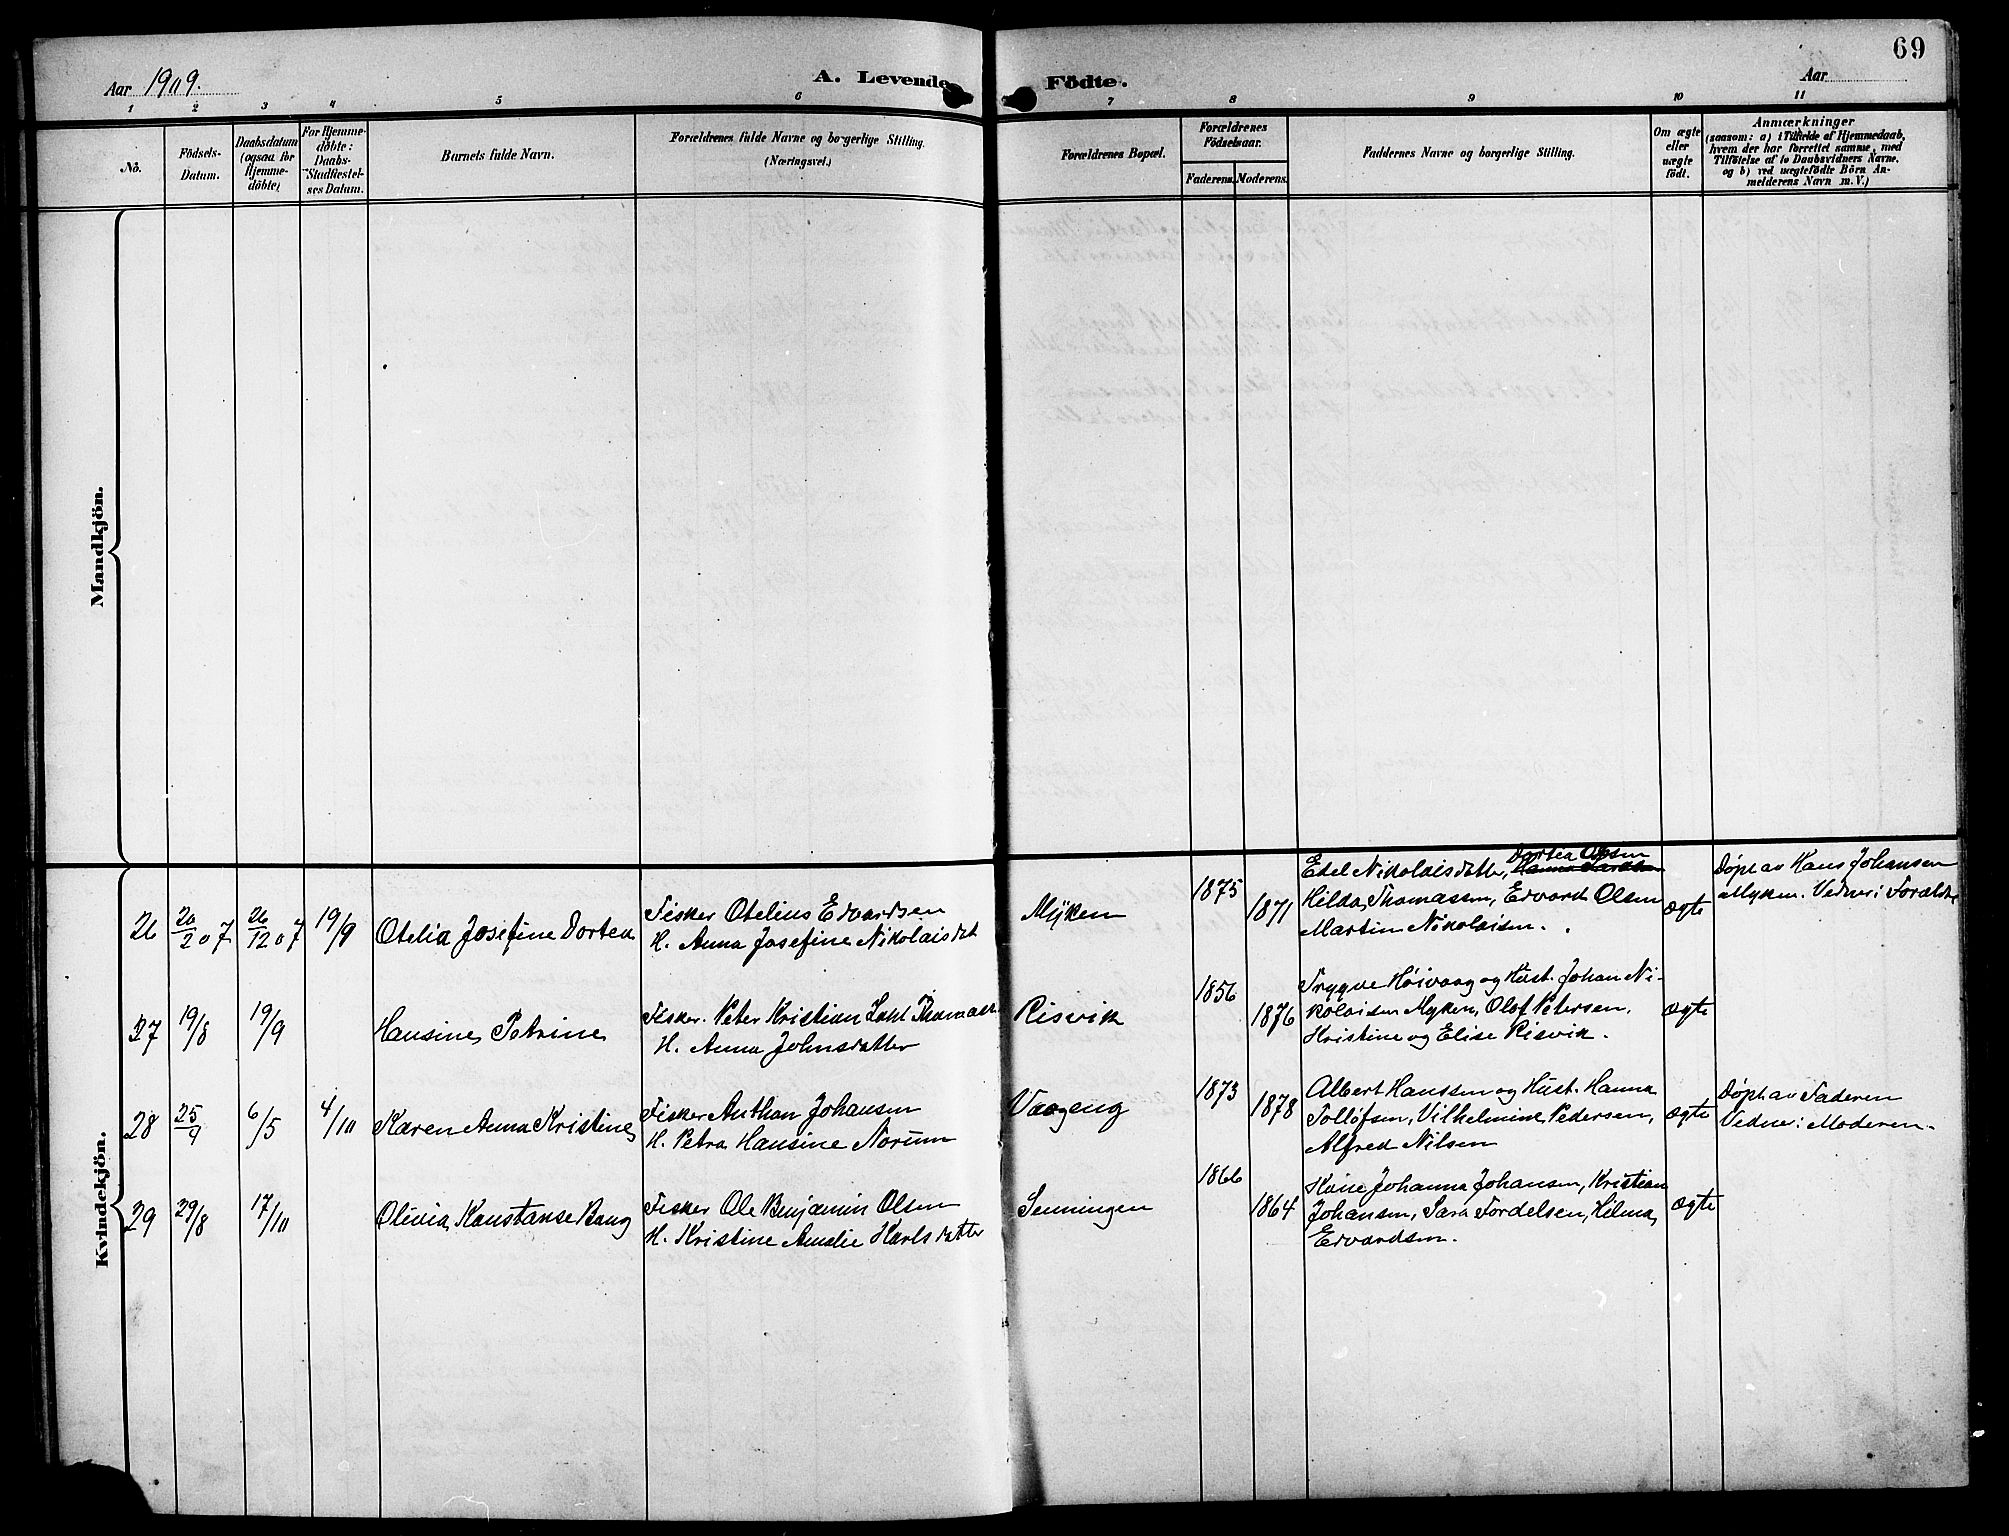 69
Aar 1909.
A. Levende
Födte.
Aar
1 2 3 4 5 6 7 8 9 10 11
No.
Födsels-
Datum.
Daabsdatum
(ogsaa for
Hjemme-
döbte)
For Hjemme-
döbte:
Daabs-
Stadfæstel-
ses Datum.
Barnets fulde Navn.
Forældrenes fulde Navne og borgerlige Stilling.
(Næringsvei.)
Forældrenes Bopæl.
Forældrenes
Födselsaar.
Faderens. Moderens.
Faddernes Navne og borgerlige Stilling.
Om ægte
eller
uægte
födt.
Anmærkninger
(saasom: a) i Tilfælde af Hjemmedaab,
hvem der har forrettet samme, med
Tilföielse af to Daabsvidners Navne,
og b) ved uægtefödte Börn An-
melderens Navn m. V.)
Mandkjön.
Kvindekjön.
26 20/2 07 26/12 07 19/9 Otelia Josefine Dortea
Fisker Otelius Edvardsen
H. Anna Josefine Nikolaisdat
Myken
1875
1871
Edel Nikolaisdatter, Dortea Olsen
Hilda Thomassen, Edvard Olsen
Martin Nikolaisen.
ægte
Døpt av Hans Johansen
Myken. Vedner: Forældre
27 19/8 19/9 Hansine Petrine
Fisker. Peter Kristian Dahl Thomass.
H. Anna Johnsdatter
Risvik
1856
1876
Trygve Høivaag og Hust. Johan Ni-
kolaisen Myken, Olof Petersen,
Kristine og Elise Risvik.
ægte
28 25/9 6/5 4/10 Karen Anna Kristine
Fisker Anthon Johansen
H. Petra Hansine Norum
Vaageng
1873
1878
Albert Hanssen og Hust. Hanna
Tollofsen, Vilhelmine Pedersen,
Alfred Nilsen
ægte
Døpt av Faderen
Vedne: Moderen.
29 29/8 17/10 Olivia Konstanse Bang
Fisker Ole Benjamin Olsen
H. Kristine Amalie Karlsdatter
Senningen
1866
1864
Kone Johanna Johansen, Kristian
Johansen, Sara Fordelsen, Hilma
Edvardsen.
ægte